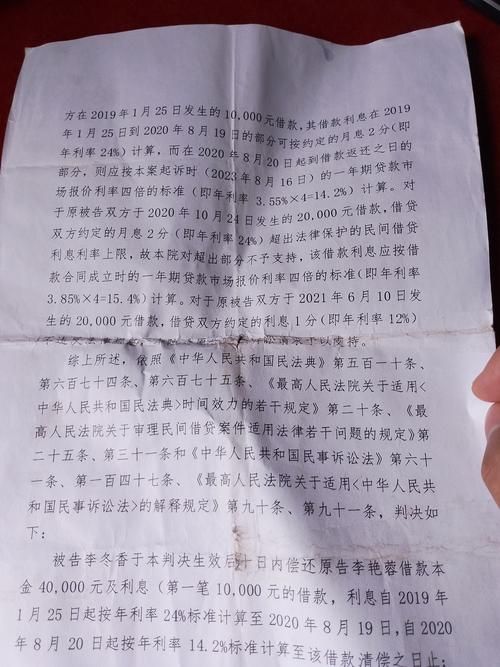 方在2019年1月25日发生的10,000元借款，其借款利息在2019
年1月25日到2020年8月19日的部分可按约定的月息2分(即
年利率24%）计算，而在2020年8月20日起到借款返还之日的
部分，则应按本案起诉时（2023年8月16日）的一年期贷款市
场报价利率四倍的标准（即年利率 3.55%×4=14.2%）计算。对
于原被告双方于2020年10月24日发生的20,000元借款，借贷
双方约定的月息2分（即年利率24%）超出法律保护的民间借贷
利息利率上限，故本院对超出部分不予支持，该借款利息应按借
款合同成立时的一年期贷款市场报价利率四倍的标准(即年利率
3.85%×4=15.4%）计算。对于原被告双方于2021年6月10日发
生的20,000元借款，借贷双方约定的利息1分（即年利率12%）
予以支持。
综上所述，依照《中华人民共和国民法典》第五百一十条、
第六百七十四条、第六百七十五条、《最高人民法院关于适用<
中华人民共和国民法典>时间效力的若干规定》第二十条、《最
高人民法院关于审理民间借贷案件适用法律若干问题的规定》第
二十五条、第三十一条和《中华人民共和国民事诉讼法》第六十一
条、第一百四十七条、《最高人民法院关于适用<中华人民共和
国民事诉讼法>的解释规定》第九十条、第九十一条，判决如
下：
被告李冬香于本判决生效后十日内偿还原告李艳蓉借款本
金40,000元及利息（第一笔10,000元的借款，利息自2019年
1月25日起按年利率24%标准计算至2020年8月19日,自2020
年8月20日起按年利率14.2%标准计算至该借款清偿之日止；